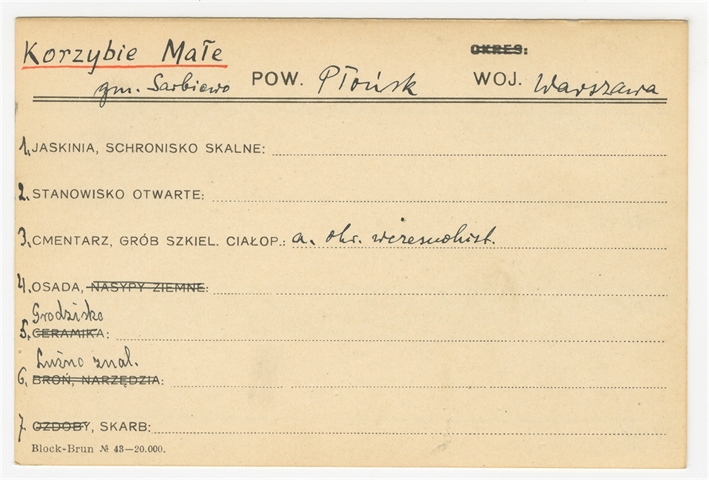 Korzybie Małe
OKRES:
gm. Sarbiewo POW. Płońsk WOJ. Warszawa
1. JASKINIA, SCHRONISKO SKALNE:
2. STANOWISKO OTWARTE:
3. CMENTARZ, GRÓB SZKIEL. CIAŁOP.: a. okr. wczesnohist.
4. OSADA, NASYPY ZIEMNE:
Grodzisko
5. CERAMIKA:
Luźno znal.
6. BROŃ, NARZĘDZIA:
7. OZDOBY, SKARB:
Block-Brun № 43—20.000.